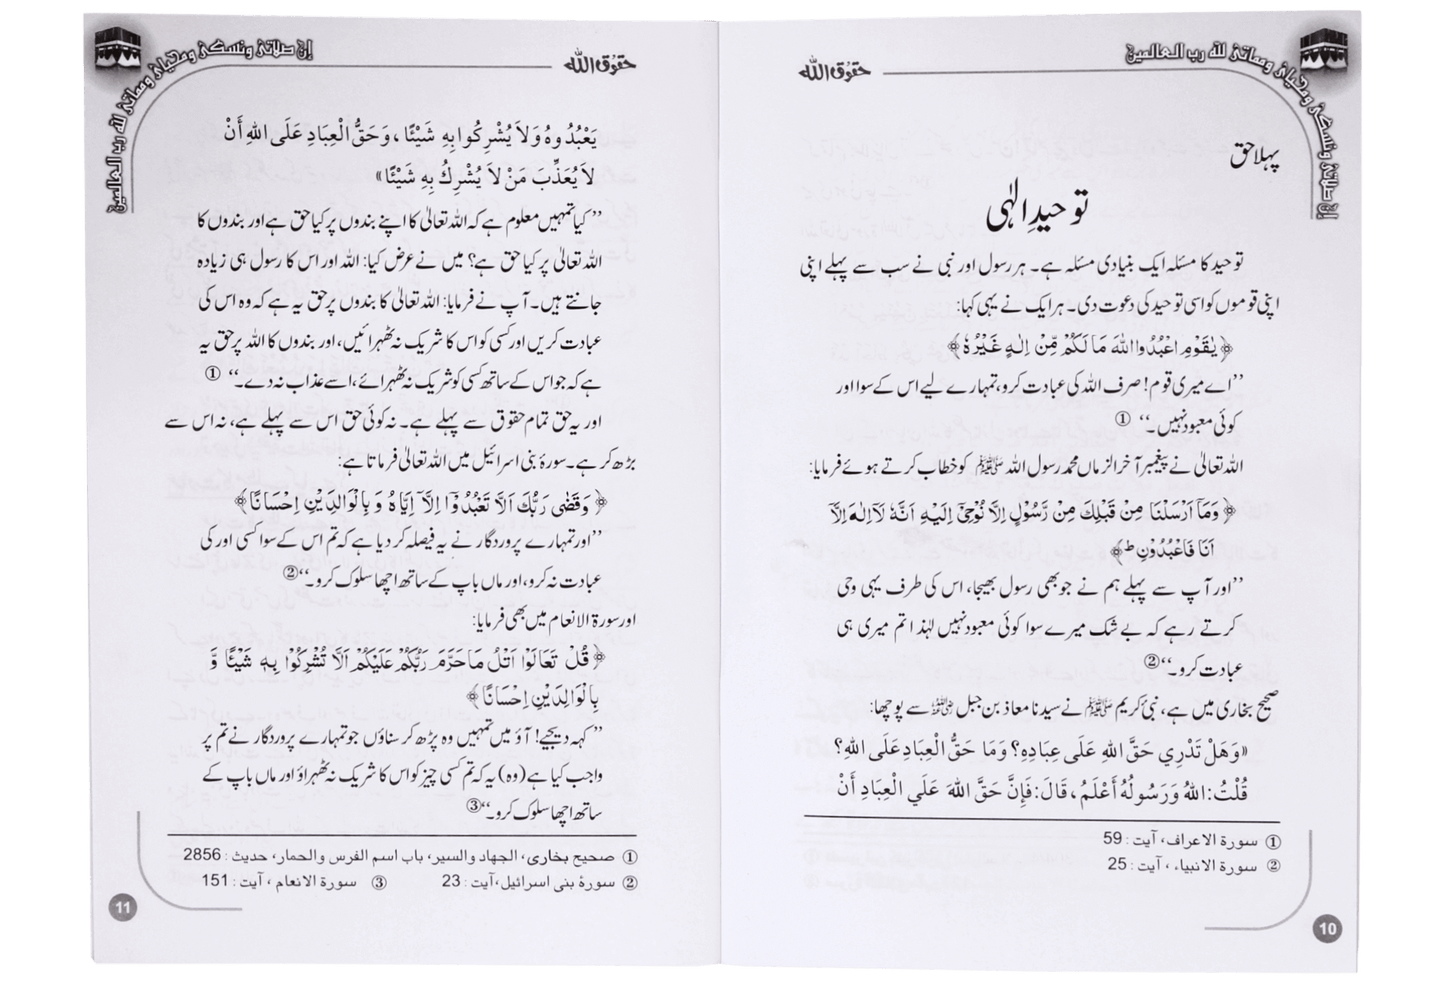 ان صلاتی ونسکی ومحیای ومماتی للہ رب العالمین
حقوق اللہ
پہلا حق
توحیدِ الٰہی
توحید کا مسئلہ ایک بنیادی مسئلہ ہے۔ ہر رسول اور نبی نے سب سے پہلے اپنی
اپنی قوموں کو اسی توحید کی دعوت دی۔ ہر ایک نے یہی کہا:
﴿ یٰقَوْمِ اعْبُدُوا اللّٰهَ مَا لَكُمْ مِّنْ اِلٰهٍ غَیْرُهٗ ﴾
’’اے میری قوم! صرف اللہ کی عبادت کرو، تمہارے لیے اس کے سوا اور
کوئی معبود نہیں۔‘‘ ①
اللہ تعالیٰ نے پیغمبر آخر الزماں محمد رسول اللہ ﷺ کو خطاب کرتے ہوئے فرمایا:
﴿ وَمَاۤ اَرْسَلْنَا مِنْ قَبْلِكَ مِنْ رَّسُوْلٍ اِلَّا نُوْحِیْۤ اِلَیْهِ اَنَّهٗ لَاۤ اِلٰهَ اِلَّاۤ
اَنَا فَاعْبُدُوْنِ ط ﴾
’’اور آپ سے پہلے ہم نے جو بھی رسول بھیجا، اس کی طرف یہی وحی
کرتے رہے کہ بے شک میرے سوا کوئی معبود نہیں لہٰذا تم میری ہی
عبادت کرو۔‘‘②
صحیح بخاری میں ہے، نبیٔ کریم ﷺ نے سیدنا معاذ بن جبل رضی اللہ عنہ سے پوچھا:
«وَهَلْ تَدْرِي حَقَّ اللهِ عَلَى عِبَادِهِ؟ وَمَا حَقُّ الْعِبَادِ عَلَى اللهِ؟
قُلْتُ: اللهُ وَرَسُولُهُ أَعْلَمُ، قَالَ: فَإِنَّ حَقَّ اللهَ عَلَي الْعِبَادِ أَنْ
① سورة الاعراف، آیت : 59
② سورة الانبیاء، آیت : 25
10
ان صلاتی ونسکی ومحیای ومماتی للہ رب العالمین
حقوق اللہ
يَعْبُدُوهُ وَلاَ يُشْرِكُوا بِهِ شَيْئًا، وَحَقُّ الْعِبَادِ عَلَى اللهِ أَنْ
لاَ يُعَذِّبَ مَنْ لاَ يُشْرِكُ بِهِ شَيْئًا»
’’کیا تمہیں معلوم ہے کہ اللہ تعالیٰ کا اپنے بندوں پر کیا حق ہے اور بندوں کا
اللہ تعالیٰ پر کیا حق ہے؟ میں نے عرض کیا: اللہ اور اس کا رسول ہی زیادہ
جانتے ہیں۔ آپ نے فرمایا: اللہ تعالیٰ کا بندوں پر حق یہ ہے کہ وہ اس کی
عبادت کریں اور کسی کو اس کا شریک نہ ٹھہرائیں، اور بندوں کا اللہ پر حق یہ
ہے کہ جو اس کے ساتھ کسی کو شریک نہ ٹھہرائے، اسے عذاب نہ دے۔‘‘ ①
اور یہ حق تمام حقوق سے پہلے ہے۔ نہ کوئی حق اس سے پہلے ہے، نہ اس سے
بڑھ کر ہے۔ سورۂ بنی اسرائیل میں اللہ تعالیٰ فرماتا ہے:
﴿ وَقَضٰی رَبُّكَ اَلَّا تَعْبُدُوْۤا اِلَّاۤ اِیَّاهُ وَ بِالْوَالِدَیْنِ اِحْسَانًا ﴾
’’اور تمہارے پروردگار نے یہ فیصلہ کر دیا ہے کہ تم اس کے سوا کسی اور کی
عبادت نہ کرو، اور ماں باپ کے ساتھ اچھا سلوک کرو۔‘‘②
اور سورۃ الانعام میں بھی فرمایا:
﴿ قُلْ تَعَالَوْا اَتْلُ مَا حَرَّمَ رَبُّكُمْ عَلَیْكُمْ اَلَّا تُشْرِكُوْا بِهٖ شَیْئًا وَّ
بِالْوَالِدَیْنِ اِحْسَانًا ﴾
’’کہہ دیجیے! آؤ میں تمہیں وہ پڑھ کر سناؤں جو تمہارے پروردگار نے تم پر
واجب کیا ہے (وہ) یہ کہ تم کسی چیز کو اس کا شریک نہ ٹھہراؤ اور ماں باپ کے
ساتھ اچھا سلوک کرو۔‘‘③
① صحیح بخاری، الجهاد والسیر، باب اسم الفرس والحمار، حدیث : 2856
② سورۂ بنی اسرائیل، آیت : 23 ③ سورة الانعام ، آیت : 151
11